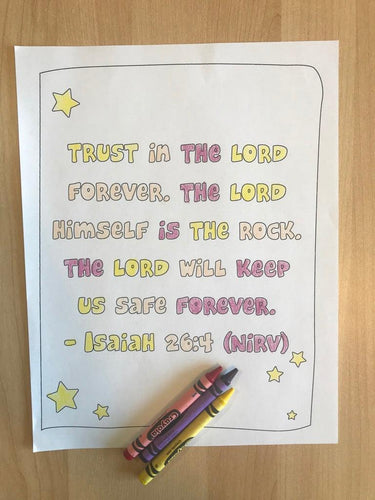 TRUST in THE LORD
FOREVER. THE LORD
Himself is THE ROCK.
THE LORD Will Keep
US Safe FOREVER.
- Isaiah 26:4 (NiRV)
Crayola